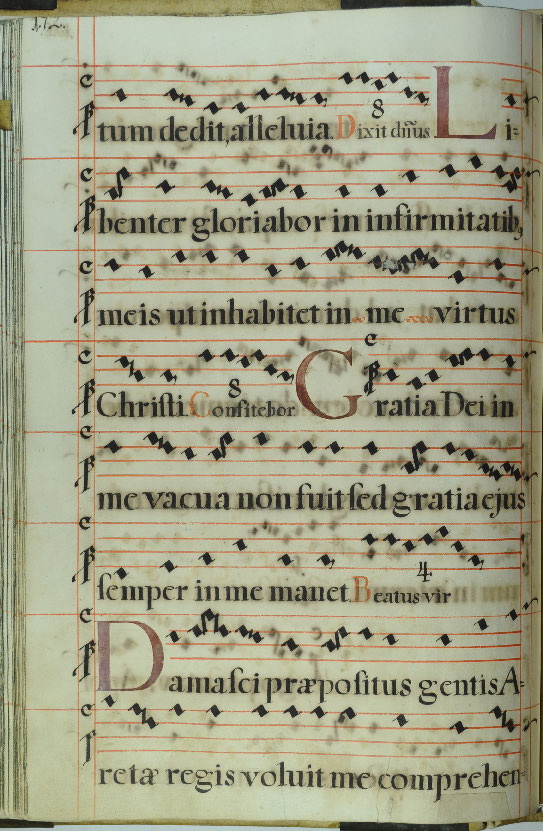 tum dedit, alleluia. Dixit dñus. 8 Li-
benter gloriabor in infirmitatib,
meis ut inhabitet in me virtus
Chriſti. Confitebor 8 Gratia Dei in
me vacua non fuit ſed gratia ejus
ſemper in me manet. Beatus vir 4
Damaſci præpoſitus gentis A-
retæ regis voluit me comprehen-